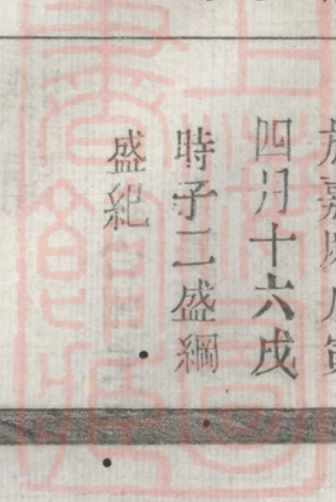 於嘉慶戊寅
四月十六戌
時子二盛綱
盛紀